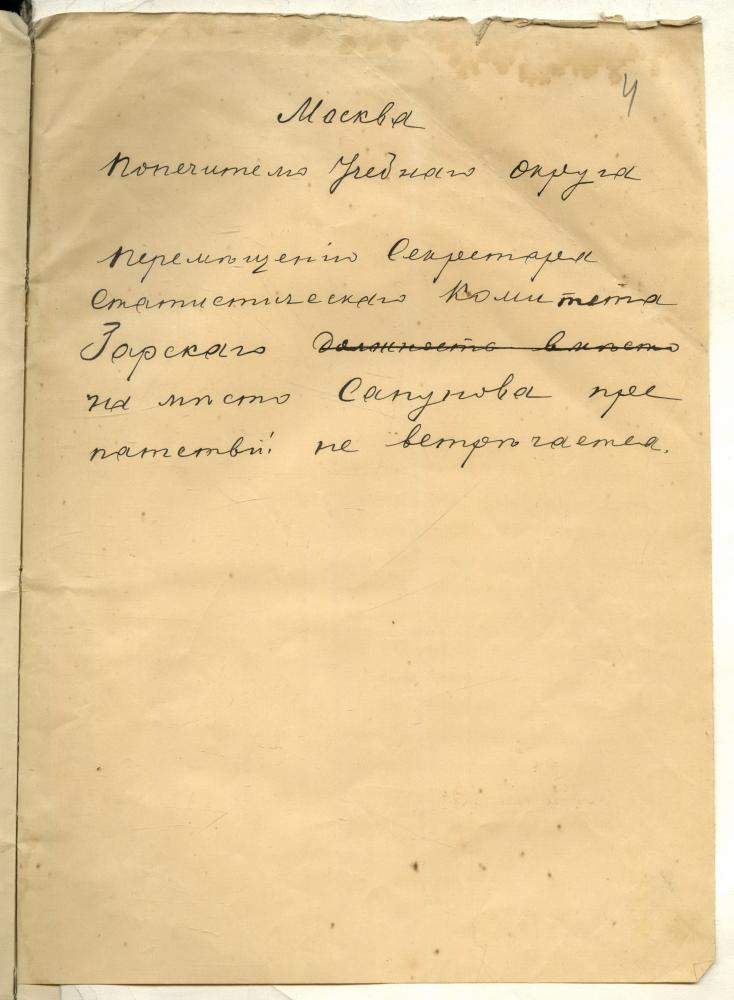 4
Москва
Попечителю Учебнаго Округа
Перемѣщенію Секретаря
Статистическаго Комитета
Зорскаго должность вмѣсто
на мѣсто Сапунова пре
пятствiй не встрѣчается.